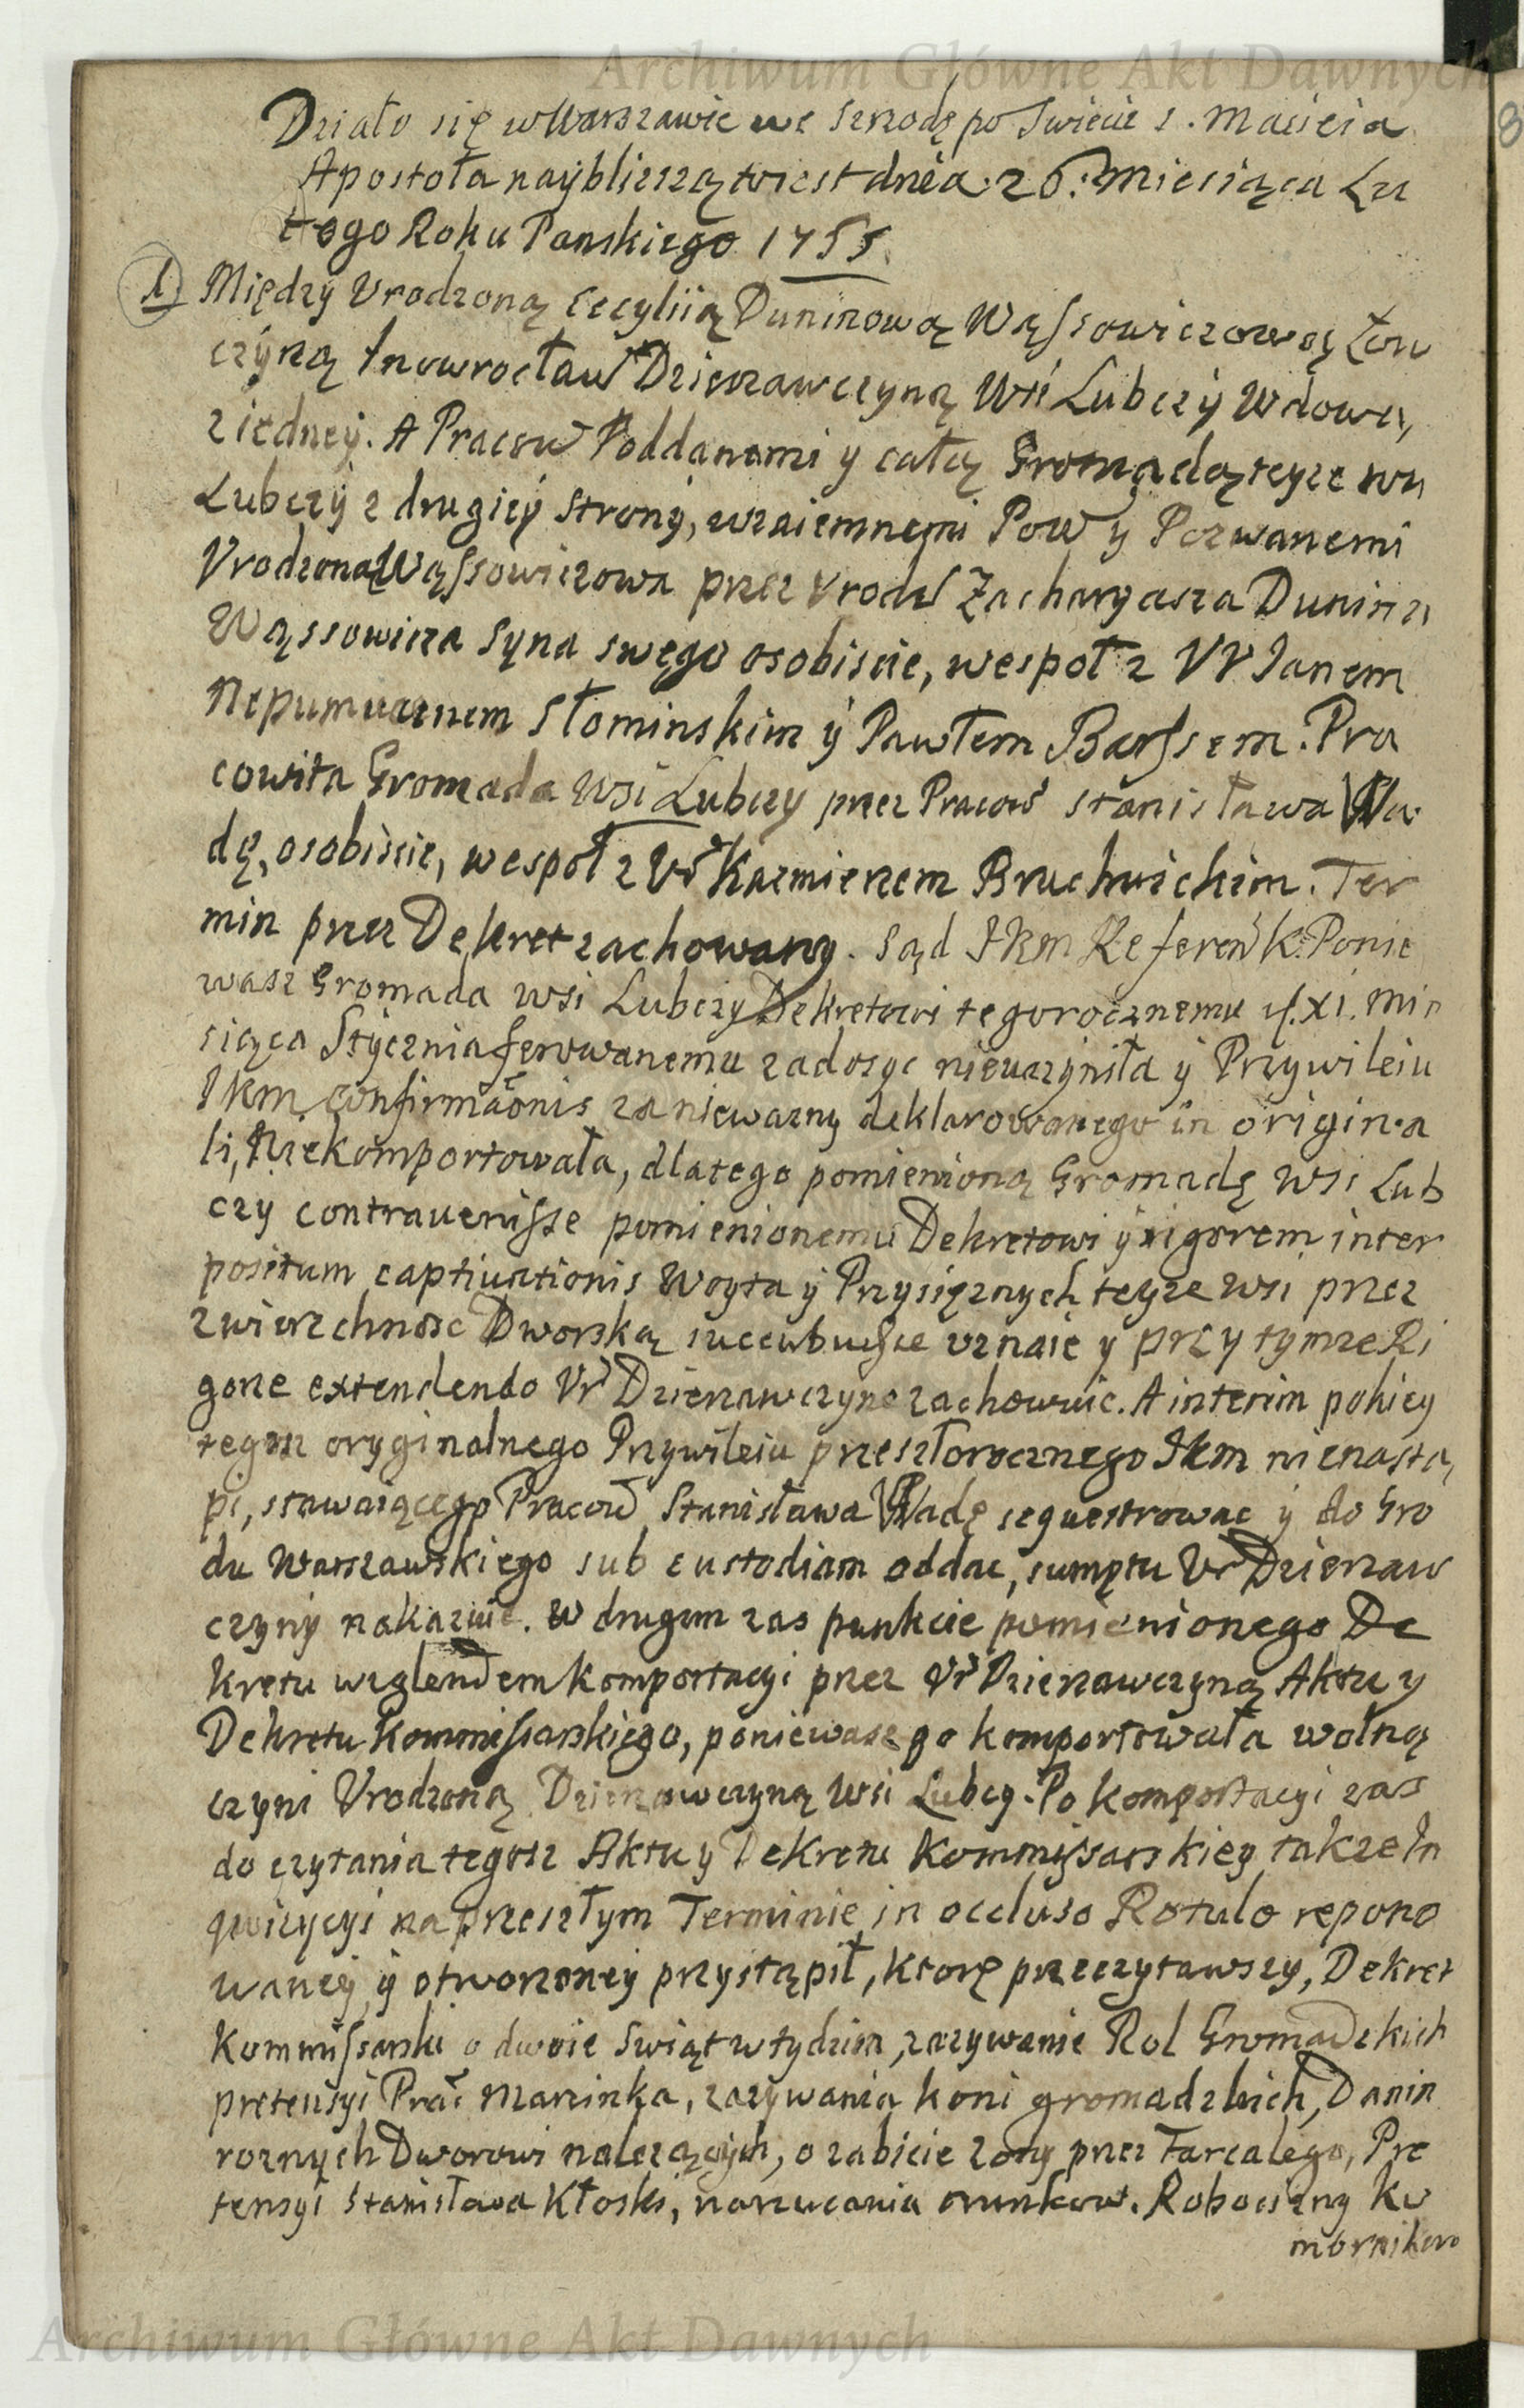 Archiwum Główne Akt Dawnych
8
Działo się w Warszawie we Srzodę po Swiecie S. Macieia
Apostoła naybliższą to iest dnia 26. Miesiąca Lu
tego Roku Panskiego 1755.
1) Między Vrodzoną Cecyliią Duninową Wąssowiczową Łow
czyną Inowrocław Dzierzawczyną Wsi Lubczy Wdową,
z iedney. A Pracow Poddanemi y całą Gromadą teyze wsi
Lubczy z drugiey strony, wzaiemnemi Pow y Pozwanemi
Vrodzona Wąssowiczowa przez Vrodz Zacharyasza Dunina
Wąssowicza syna swego osobiscie, wespoł z VV Janem
Nepumucenem Słominskim y Pawłem Barssem. Pra
cowita Gromada Wsi Lubczy przez Pracow Stanisława Wa
dę, osobiscie, wespoł z Vr Kazmierzem Bruchwickim. Ter
min przez Dekret zachowany. Sąd JKM Referen K. Ponie
wasz Gromada wsi Lubczy Dekretowi tegorocznemu XI. Mie
siąca Stycznia ferowanemu zadosyc nieuczyniła y Przywileiu
JKM confirmaonis za niewazny deklarowanego in origina
li, niekomportowała, dlatego pomienioną Gromadę Wsi Lub
czy contravenisse pomienionemu Dekretowi y rigorem inter
positum captivationis Woyta y Przysięznych teyze wsi przez
zwierzchnosc Dworską succubuisse vznaie y przy tymze Ri
gorze extendendo Vr Dzierzawczyne zachowuie. A interim pokiey
tegosz oryginalnego Przywileiu przeszłorocznego JKM nienastą
pi, stawaiącego Pracow Stanisława Wadę sequestrowac y do Gro
du Warszawskiego sub custodiam oddac, sumptu Vr Dzierzaw
czyny nakazuie. W drugim zas punkcie pomienionego De
kretu względem komportacyi przez Vr Dzierzawczyną Aktu y
Dekretu Kommissarskiego, poniewasz go komportowała wolną
czyni Vrodzoną Dzierzawczyną Wsi Lubcy. Po komportacyi zas
do czytania tegosz Aktu y Dekretu Kommissarskiey takze In
qwizycyi na przeszłym Terminie in occluso Rotulo repono
waney y otworzoney przystąpił, ktorę przeczytawszy, Dekret
Kommissarski o dwoie Swiąt w tydzien, zazywanie Rol Gromadzkich
pretensyi Prac Marzinka, zazywania koni gromadzkich, Danin
roznych Dworowi nalezących, o zabicie zony przez Tarcalego, Pre
tensyi Stanisława Kłoski, narzucania trunkow. Robocizny ko
mornikow
Archiwum Główne Akt Dawnych